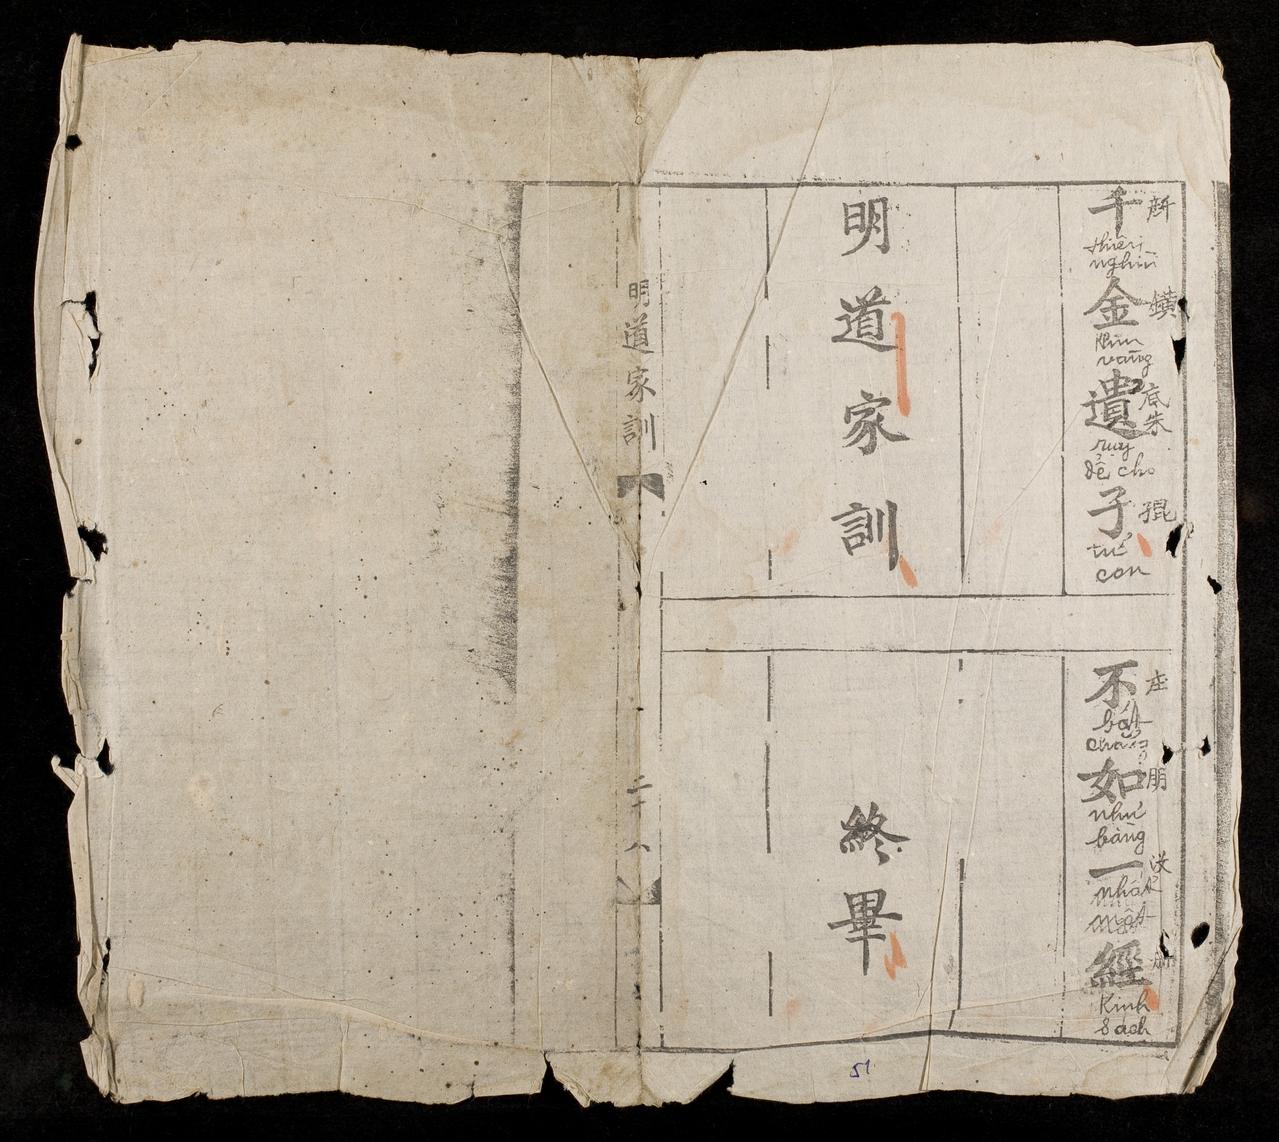 千金遺子
thiên nghìn
kim vàng
底朱
duy để cho
子 tử con
不如一經
bất chẳng
朋
như bằng
nhất một
Kinh Sách
明道家訓
終畢
明道家訓
二十八
51